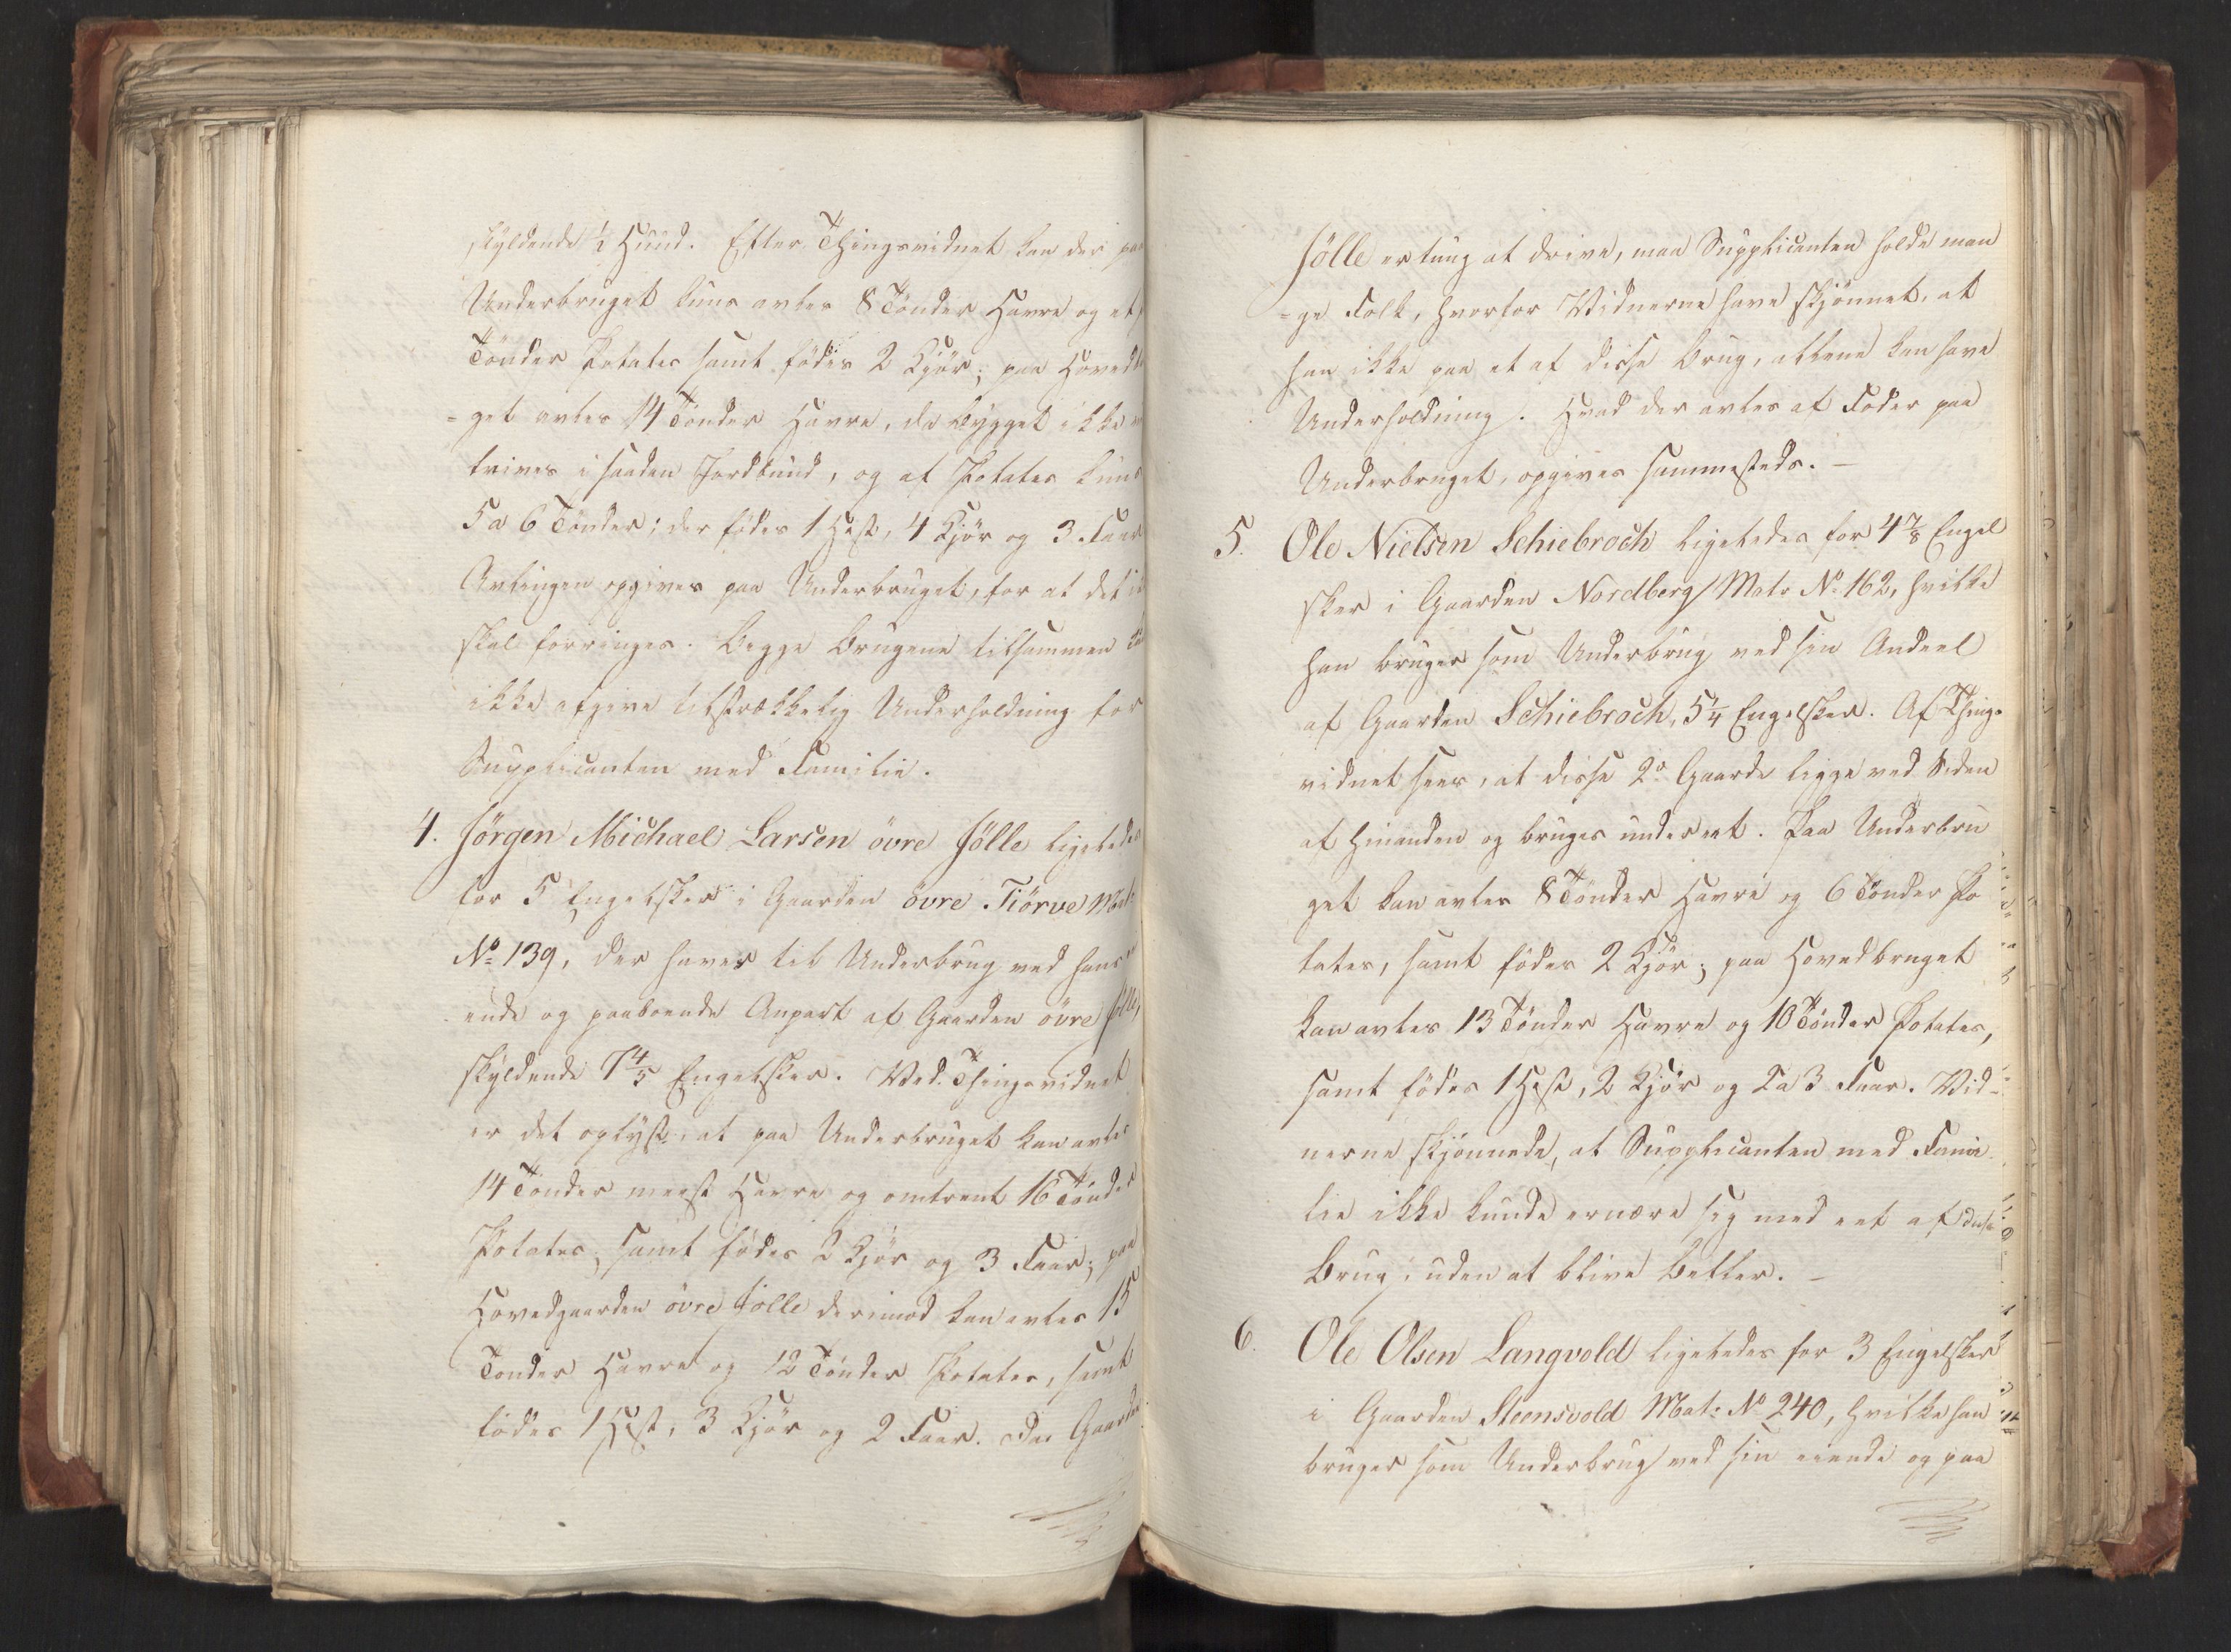 skyldende ½ Hund. Efter Thingsvidnet kan der paa
Underbruget kuns avles 8 Tönder Havre og et
Tönder Potates samt födes 2 Kjör; paa Hovedb
=get avles 14 Tönder Havre, da Bygget ikke
trives i saadan Jordbund, og af Potates kuns
5 a 6 Tönder; der födes 1 Hest, 4 Kjör og 3 Faar
Avlingen opgives paa Underbruget, for at det i
skal forringes. Begge Brugene tilsammen
ikke afgive tilstrækkelig Underholdning for
Supplicanten med Familie.
4. Jörgen Michael Larsen övre Jölle ligeledes
for 5 Engelsker i Gaarden övre Tiörve Mat:
No 139, der haves til Underbrug ved hans
ende og paaboende Anpart af Gaarden övre Jölle,
skyldende 7 4/5 Engelsker. Ved Thingsvidnet
er det oplyst, at paa Underbruget kan avles
14 Tönder meest Havre og omtrent 16 Tönder
Potates, samt födes 2 Kjör og 3 Faar; paa
Hovedgaarden övre Jölle derimod kan avles 15
Tönder Havre og 12 Tönder Potates, samt
födes 1 Hest, 3 Kjör og 2 Faar. Da Gaarden
Jölle er tung at drive, maa Supplicanten holde man
=ge Folk, hvorfor Vidnerne have skjönnet, at
han ikke paa et af disse Brug, allene kan have
Underholdning. Hvad der avles af Foder paa
Underbruget, opgives sammesteds. —
5. Ole Nielsen Schiebroch ligeledes for 4 7/8 Engel
sker i Gaarden Nordberg Matr No 162, hvilke
han bruger som Underbrug ved sin Andeel
af Gaarden Schiebroch, 5 1/4 Engelsker. Af Things
vidnet sees, at disse 2de Gaarde ligge ved Siden
af hinanden og bruges under eet. Paa Underbru
get kan avles 8 Tönder Havre og 6 Tönder Po
tates, samt födes 2 Kjör; paa Hovedbruget
kan avles 13 Tönder Havre og 10 Tönder Potates,
samt födes 1 Hest, 2 Kjör og 2 a 3 Faar. Vid-
nerne skjönnede, at Supplicanten med Fami
lie ikke kunde ernære sig med eet af disse
Brug, uden at blive Betler. —
6. Ole Olsen Langvold ligeledes for 3 Engelsker
i Gaarden Steensvold Mat: No 240, hvilke han
bruger som Underbrug ved sin eiende og paa